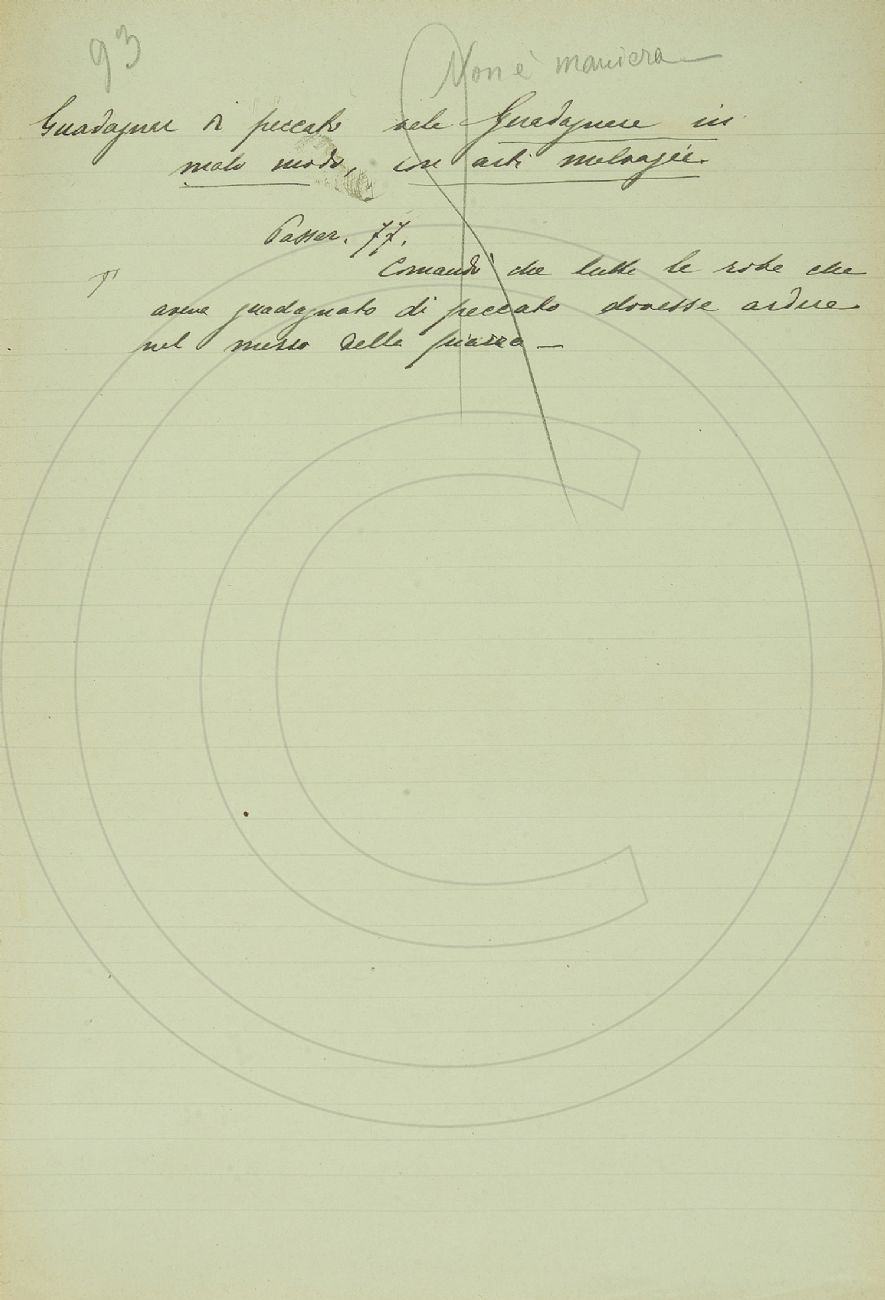 93
Non è maniera
Guadagnare di peccato vale Guadagnare in
malo modo, con arti malvagie.
Passav. 77.
Comandò che tutte le robe che
aveva guadagnato di peccato dovesse ardere
nel mezzo della piazza —